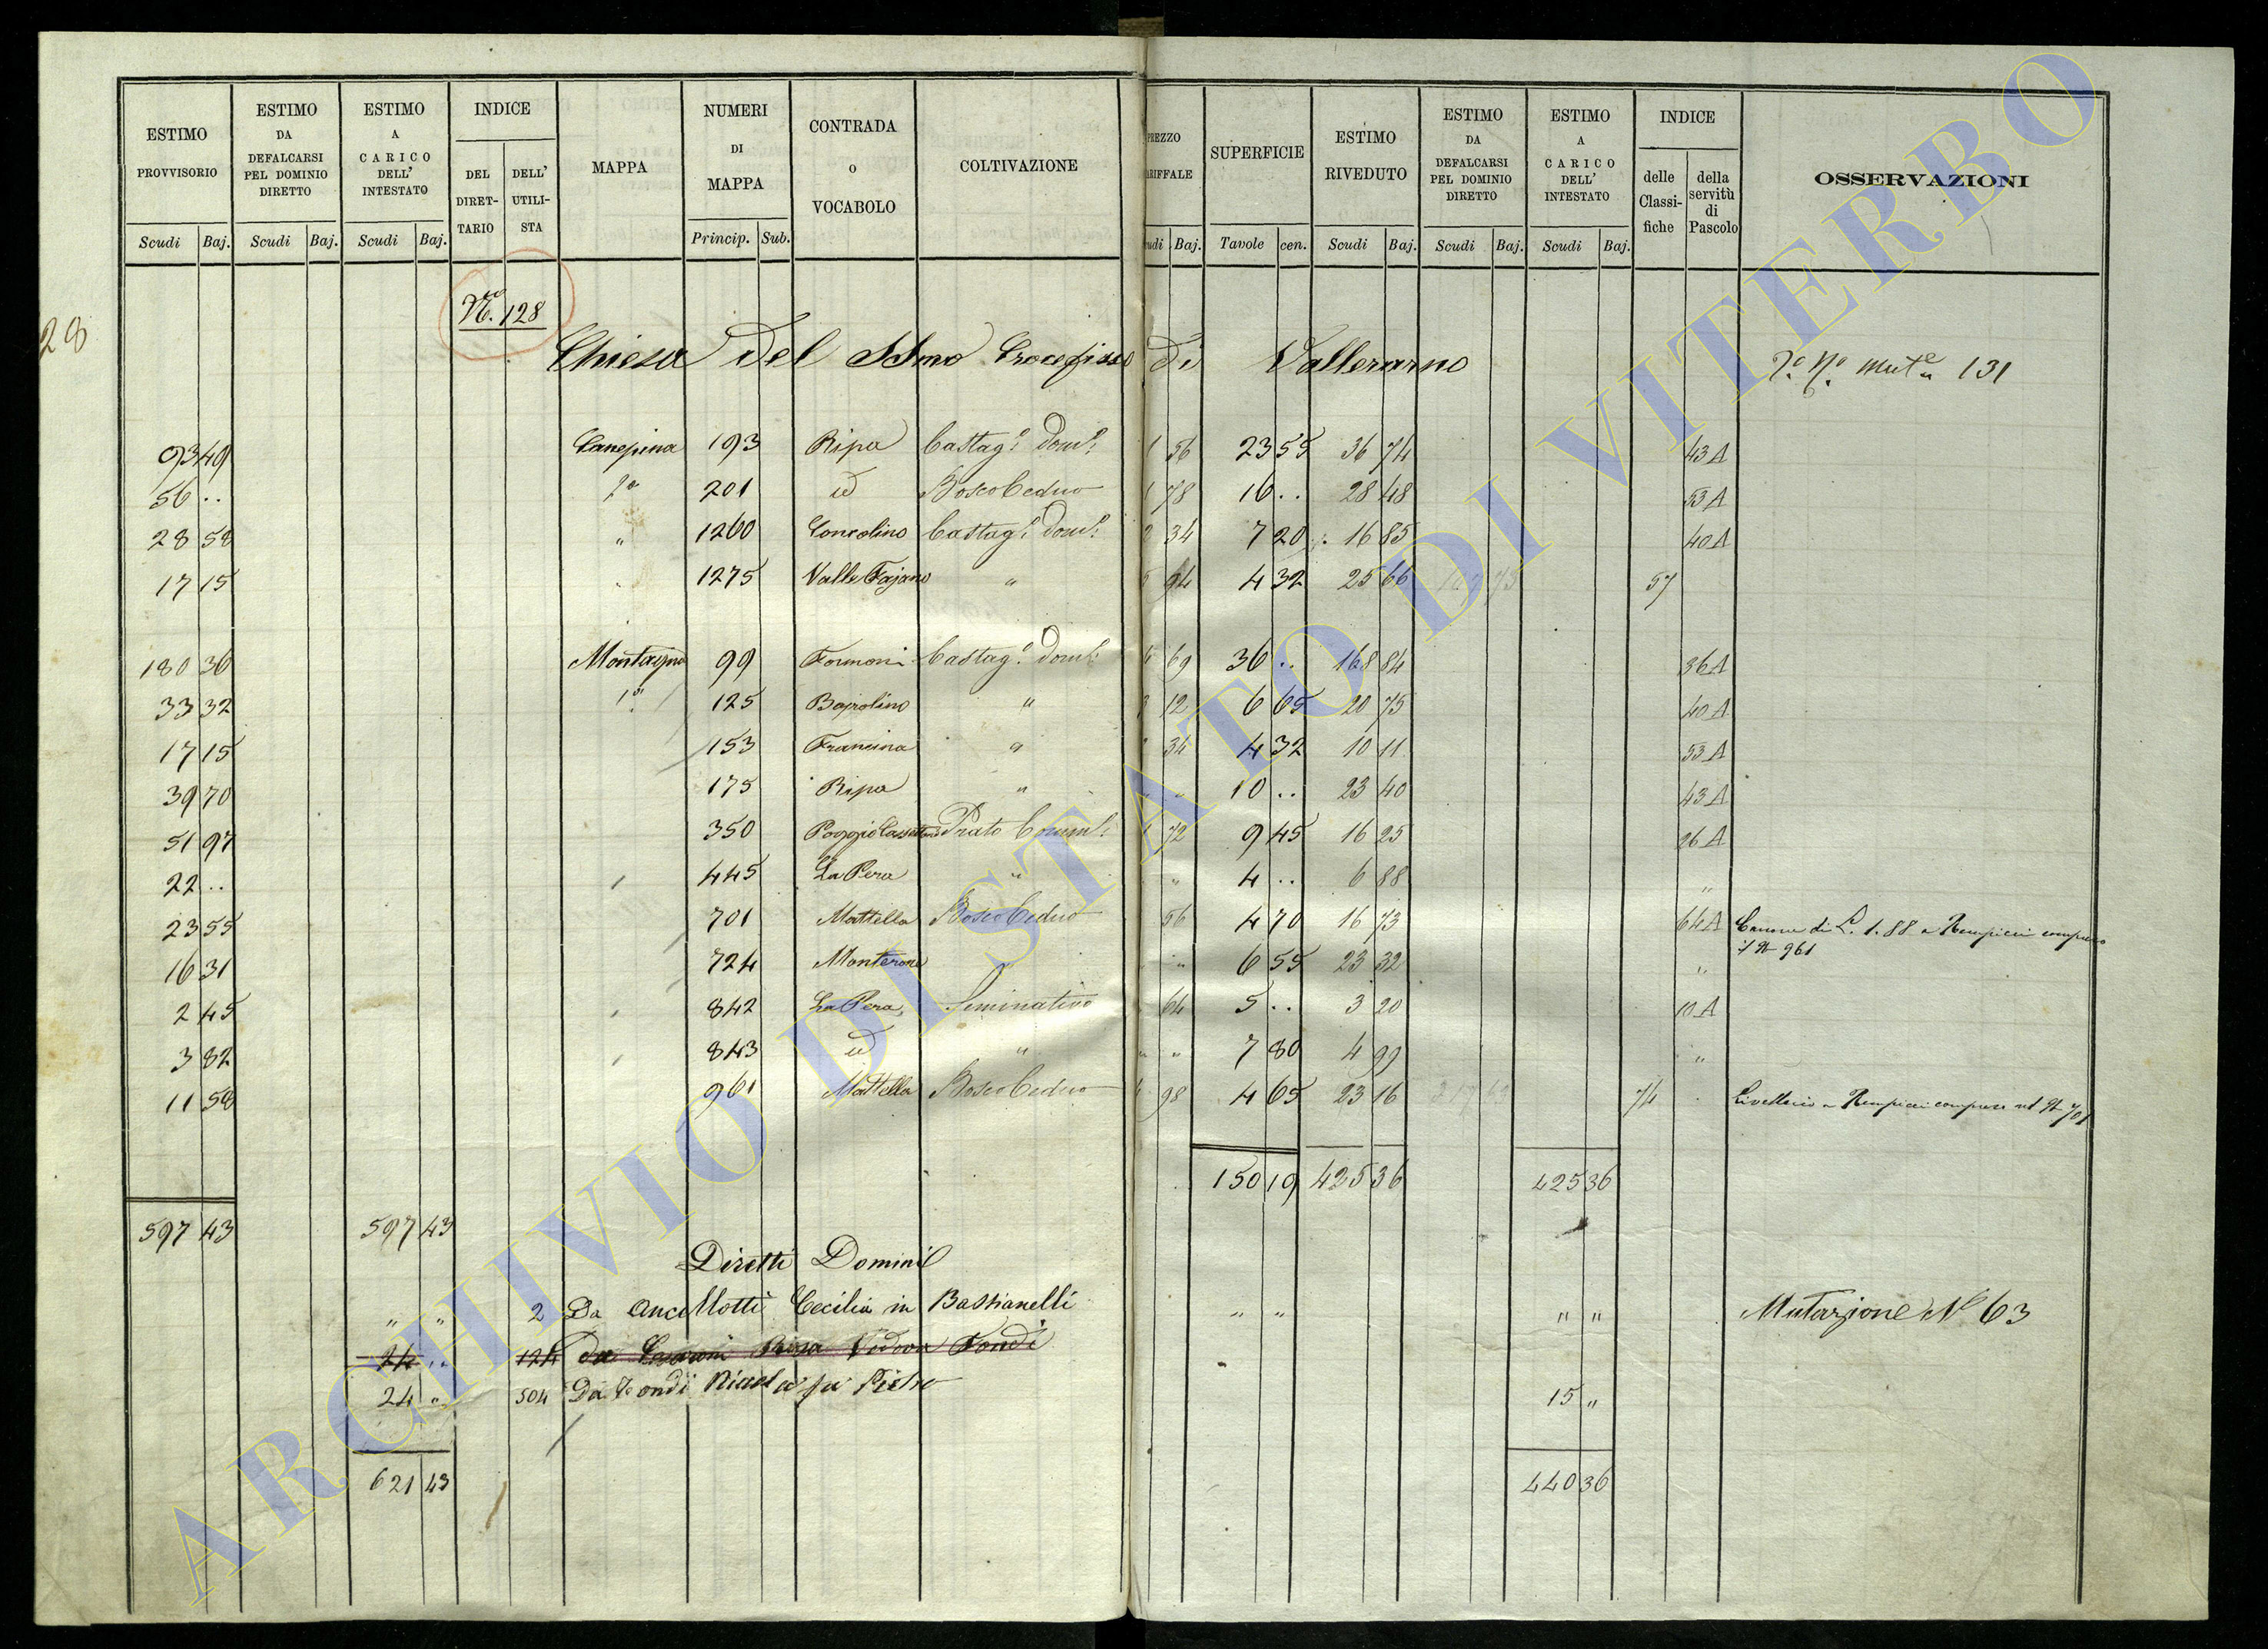 ESTIMO PROVVISORIO Scudi Baj.
ESTIMO DA DEFALCARSI PEL DOMINIO DIRETTO Scudi Baj.
ESTIMO A CARICO DELL' INTESTATO Scudi Baj.
INDICE DEL DIRET-TARIO DELL' UTILI-STA
MAPPA
NUMERI DI MAPPA Princip. Sub.
CONTRADA o VOCABOLO
COLTIVAZIONE
PREZZO TARIFFALE Scudi Baj.
SUPERFICIE Tavole cen.
ESTIMO RIVEDUTO Scudi Baj.
ESTIMO DA DEFALCARSI PEL DOMINIO DIRETTO Scudi Baj.
ESTIMO A CARICO DELL' INTESTATO Scudi Baj.
INDICE delle Classi-fiche della servitù di Pascolo
OSSERVAZIONI
28
No. 128
Chiesa Del SSmo Crocefisso di Vallerano
131
93 49 Canepina 193 Ripa Castag.o Dom.o 1 56 23 55 36 74 43 A
56 .. 1a 201 id Bosco Ceduo 1 78 16 .. 28 48 53 A
28 58 " 1260 Concolino Castag.o Dom.o 2 34 7 20 16 85 40 A
17 15 " 1275 Valle Fajano " 5 94 4 32 25 66 57
180 36 Montagna 99 Formoni Castag.o Dom.o 4 69 36 .. 168 84 36 A
33 32 1a 125 Bajolino " 3 12 6 65 20 75 40 A
17 15 153 Francina " 34 4 32 10 11 53 A
39 70 175 Ripa " " " 10 .. 23 40 43 A
51 97 350 Poggio Prato 1 72 9 45 16 25 26 A
22 .. 445 La Pera " " 4 .. 6 88 "
23 55 701 Mattella Bosco Ceduo 56 4 70 16 73 64 A Canone di L. 1.88 a Rempicci compreso
il N 961
16 31 724 Monterone " " " 6 55 23 32 "
2 45 842 La Pera Seminativo 64 5 .. 3 20 10 A
3 82 843 id " " " 7 80 4 99 "
11 58 961 Mattella Bosco Ceduo 4 98 4 65 23 16 74 Livellario a Rempicci compreso nel N 701
150 19 425 36 425 36
597 43 597 43
Diretti Dominii
" " 2 Da Ancellotti Cecilia in Bastianelli " " " " Mutazione No 63
24 " 124 da Rosa Vedova Fondi
24 " 504 Da Fondi Nicola fu Pietro 15 "
621 43 440 36
ARCHIVIO DI STATO DI VITERBO